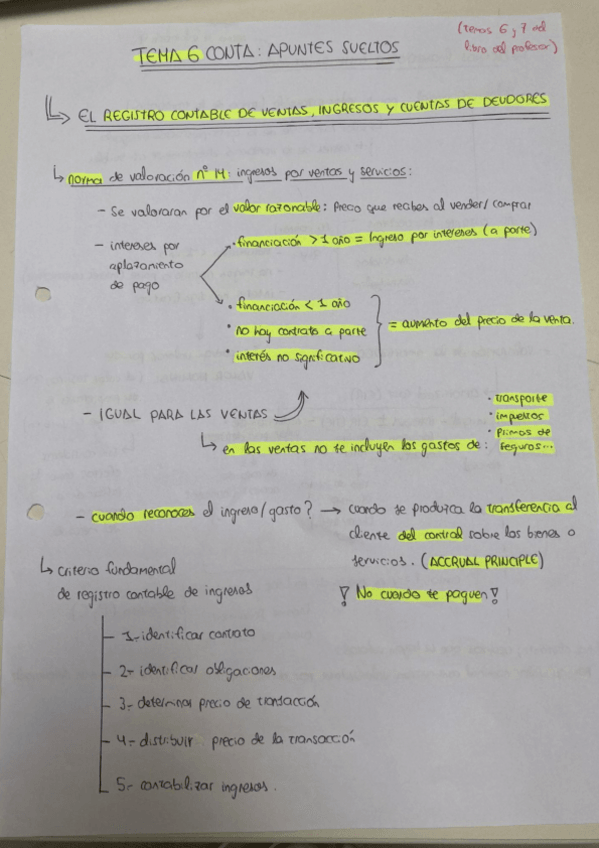 TEMA 6 CONTA: APUNTES SUELTOS
(temas 6 y 7 del
libro del profesor)
EL REGISTRO CONTABLE DE VENTAS, INGRESOS Y CUENTAS DE DEUDORES
norma de valoración nº 14: ingresos por ventas y servicios:
- Se valoraran por el valor razonable: Precio que recibes al vender/comprar
- intereses por
aplazamiento
de pago
· financiación > 1 año = Ingreso por intereses (a parte)
· financiación < 1 año
· no hay contrato a parte
· interés no significativo
= aumento del precio de la venta.
- IGUAL PARA LAS VENTAS
en las ventas no te incluyen los gastos de:
· transporte
· impuestos
· Primas de
seguros...
- cuando reconoces el ingreso/gasto? → cuando se produzca la transferencia al
cliente del control sobre los bienes o
servicios. (ACCRUAL PRINCIPLE)
! No cuando te paguen!
criterio fundamental
de registro contable de ingresos
1- identificar contrato
2- identificar obligaciones
3- determinar precio de transacción
4- distribuir precio de la transacción
5- contabilizar ingresos.